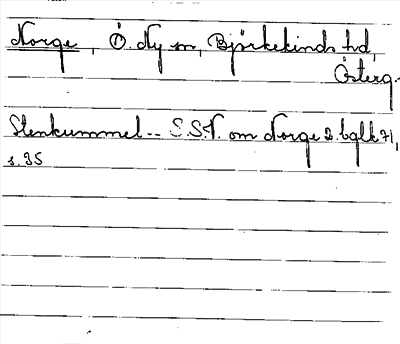 Norge, Ö. Ny sn, Björkekinds hd,
Österg.
Stenkummel -- S.S.V. om Norge 2. bglb 71,
s. 35